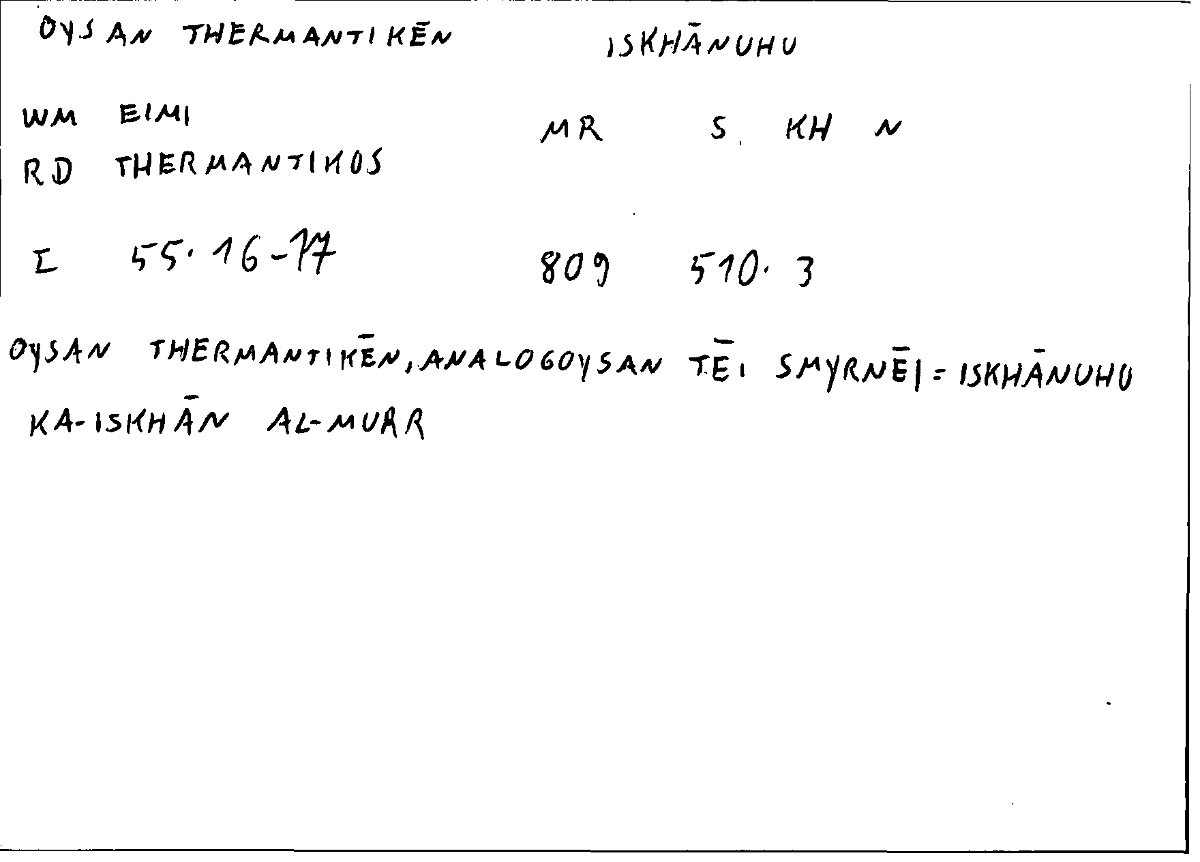 OYSAN THERMANTIKĒN ISKHĀNUHU
WM EIMI
MR S KH N
RD THERMANTIKOS
I 55.16-17 809 510.3
OYSAN THERMANTIKĒN, ANALOGOYSAN TĒI SMYRNĒI = ISKHĀNUHU
KA-ISKHĀN AL-MURR